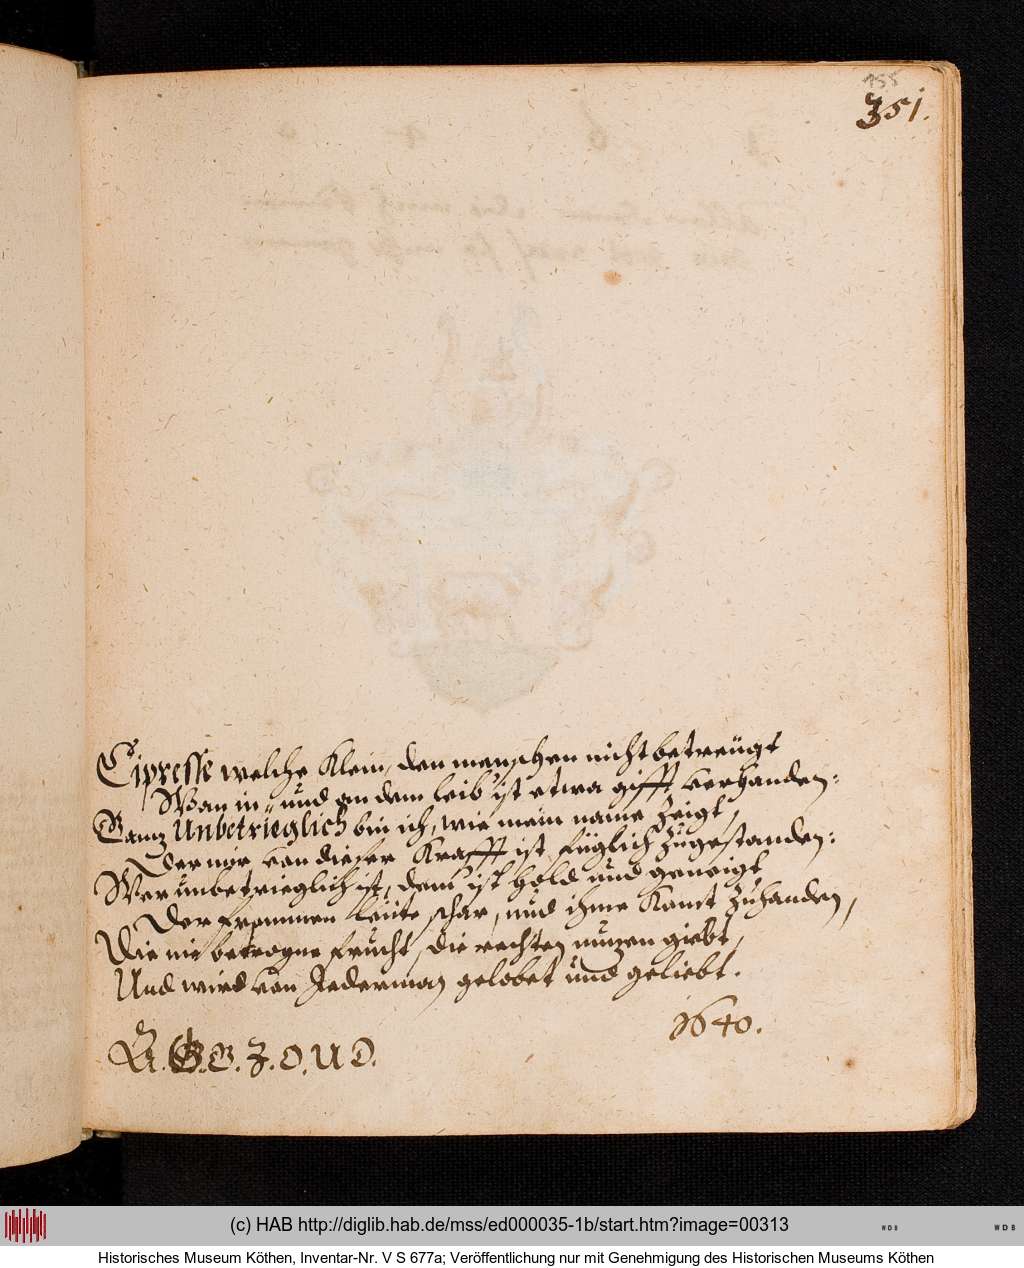 155
351.
Cipresse welche klein, den menschen nicht betreügt
Wan in und an dem leib ist etwa gifft verhanden:
Gantz Unbetrieglich bin ich, wie mein name zeigt,
Der mir von dieser Krafft ist füglich zugestanden:
Wer unbetrieglich ist, dem ist hold und geneigt
Der frommen leute schar, und ihme kömt zuhanden,
Die nie betrogne frucht, die rechten nutzen giebt,
Und wird von Jederman gelobet und geliebt.
1640.
G. G. Z. O. U D.
(c) HAB http://diglib.hab.de/mss/ed000035-1b/start.htm?image=00313
WDB
WDB
Historisches Museum Köthen, Inventar-Nr. V S 677a; Veröffentlichung nur mit Genehmigung des Historischen Museums Köthen